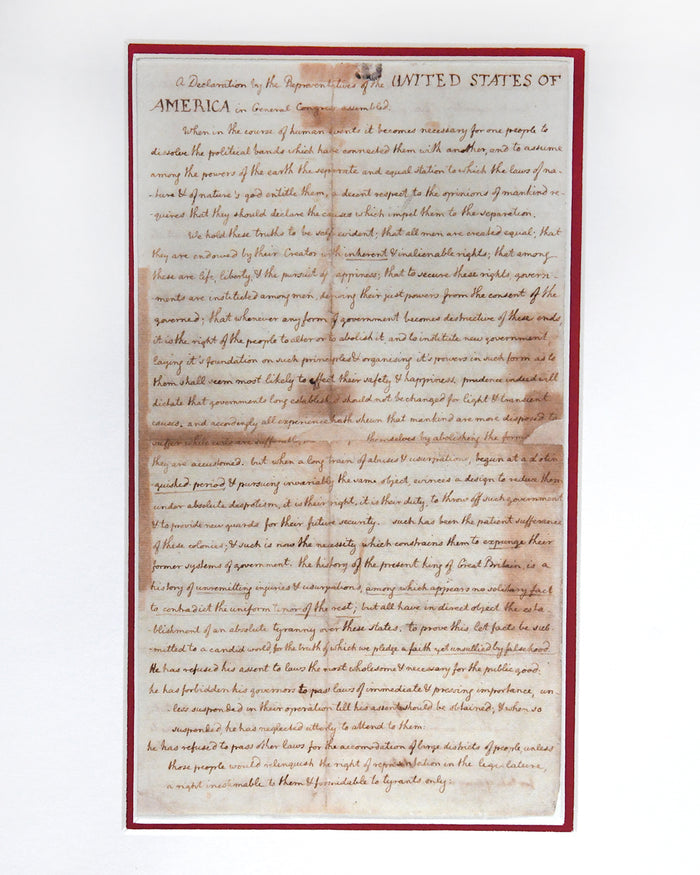 A Declaration by the Representatives of the UNITED STATES OF
AMERICA in General Congress assembled.
When in the course of human events it becomes necessary for one people to
dissolve the political bands which have connected them with another, and to assume
among the powers of the earth the separate and equal station to which the laws of na-
-ture & of nature's god entitle them, a decent respect to the opinions of mankind re-
-quires that they should declare the causes which impel them to the separation.
We hold these truths to be self evident; that all men are created equal; that
they are endowed by their Creator with inherent & inalienable rights; that among
these are life, liberty, & the pursuit of happiness; that to secure these rights, govern-
-ments are instituted among men, deriving their just powers from the consent of the
governed; that whenever any form of government becomes destructive of these ends,
it is the right of the people to alter or to abolish it, and to institute new government
laying it's foundation on such principles & organising it's powers in such form as to
them shall seem most likely to effect their safety & happiness. prudence indeed will
dictate that governments long established should not be changed for light & transient
causes. and accordingly all experience hath shewn that mankind are more disposed to
suffer while evils are sufferable, themselves by abolishing the forms
they are accustomed. but when a long train of abuses & usurpations, begun at a distin-
-guished period, & pursuing invariably the same object, evinces a design to reduce them
under absolute despotism, it is their right, it is their duty, to throw off such government
& to provide new guards for their future security. such has been the patient sufferance
of these colonies; & such is now the necessity which constrains them to expunge their
former systems of government. the history of the present king of Great Britain, is a
history of unremitting injuries & usurpations, among which appears no solitary fact
to contradict the uniform tenor of the rest; but all have in direct object the esta-
-blishment of an absolute tyranny over these states. to prove this let facts be sub-
-mitted to a candid world, for the truth of which we pledge a faith yet unsullied by falsehood.
He has refused his assent to laws the most wholesome & necessary for the public good:
he has forbidden his governors to pass laws of immediate & pressing importance, un-
-less suspended in their operation till his assent should be obtained; & when so
suspended, he has neglected utterly to attend to them:
he has refused to pass other laws for the accomodation of large districts of people, unless
those people would relinquish the right of representation in the legislature,
a right inestimable to them & formidable to tyrants only: